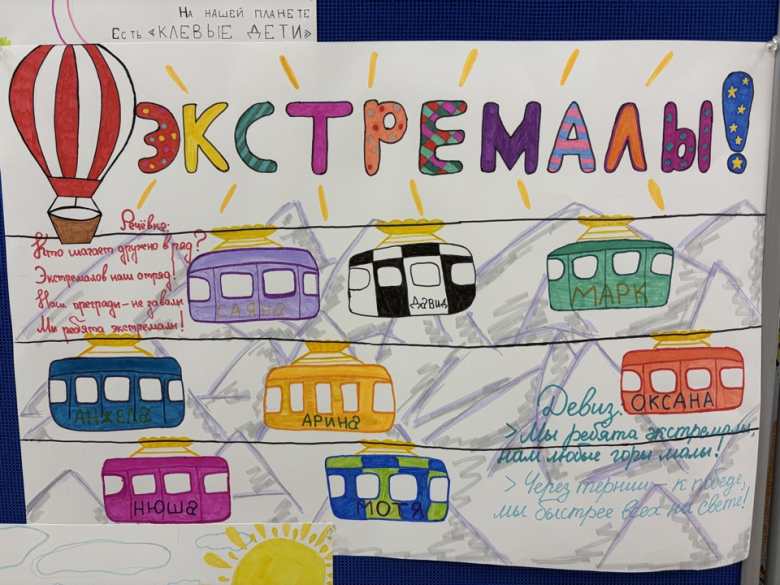 На нашей планете
Есть «КЛЕВЫЕ ДЕТИ»
ЭКСТРЕМАЛЫ!
Речёвка:
Кто шагает дружно в ряд?
Экстремалов наш отряд!
Нам преграды - не завали
Мы ребята экстремалы!
САЯНА
Давид
МАРК
АНЖЕЛА
АРИНА
ОКСАНА
НЮША
МОТЯ
Девиз:
> Мы ребята экстремалы,
нам любые горы малы!
> Через тернии – к победе,
мы быстрее всех на свете!